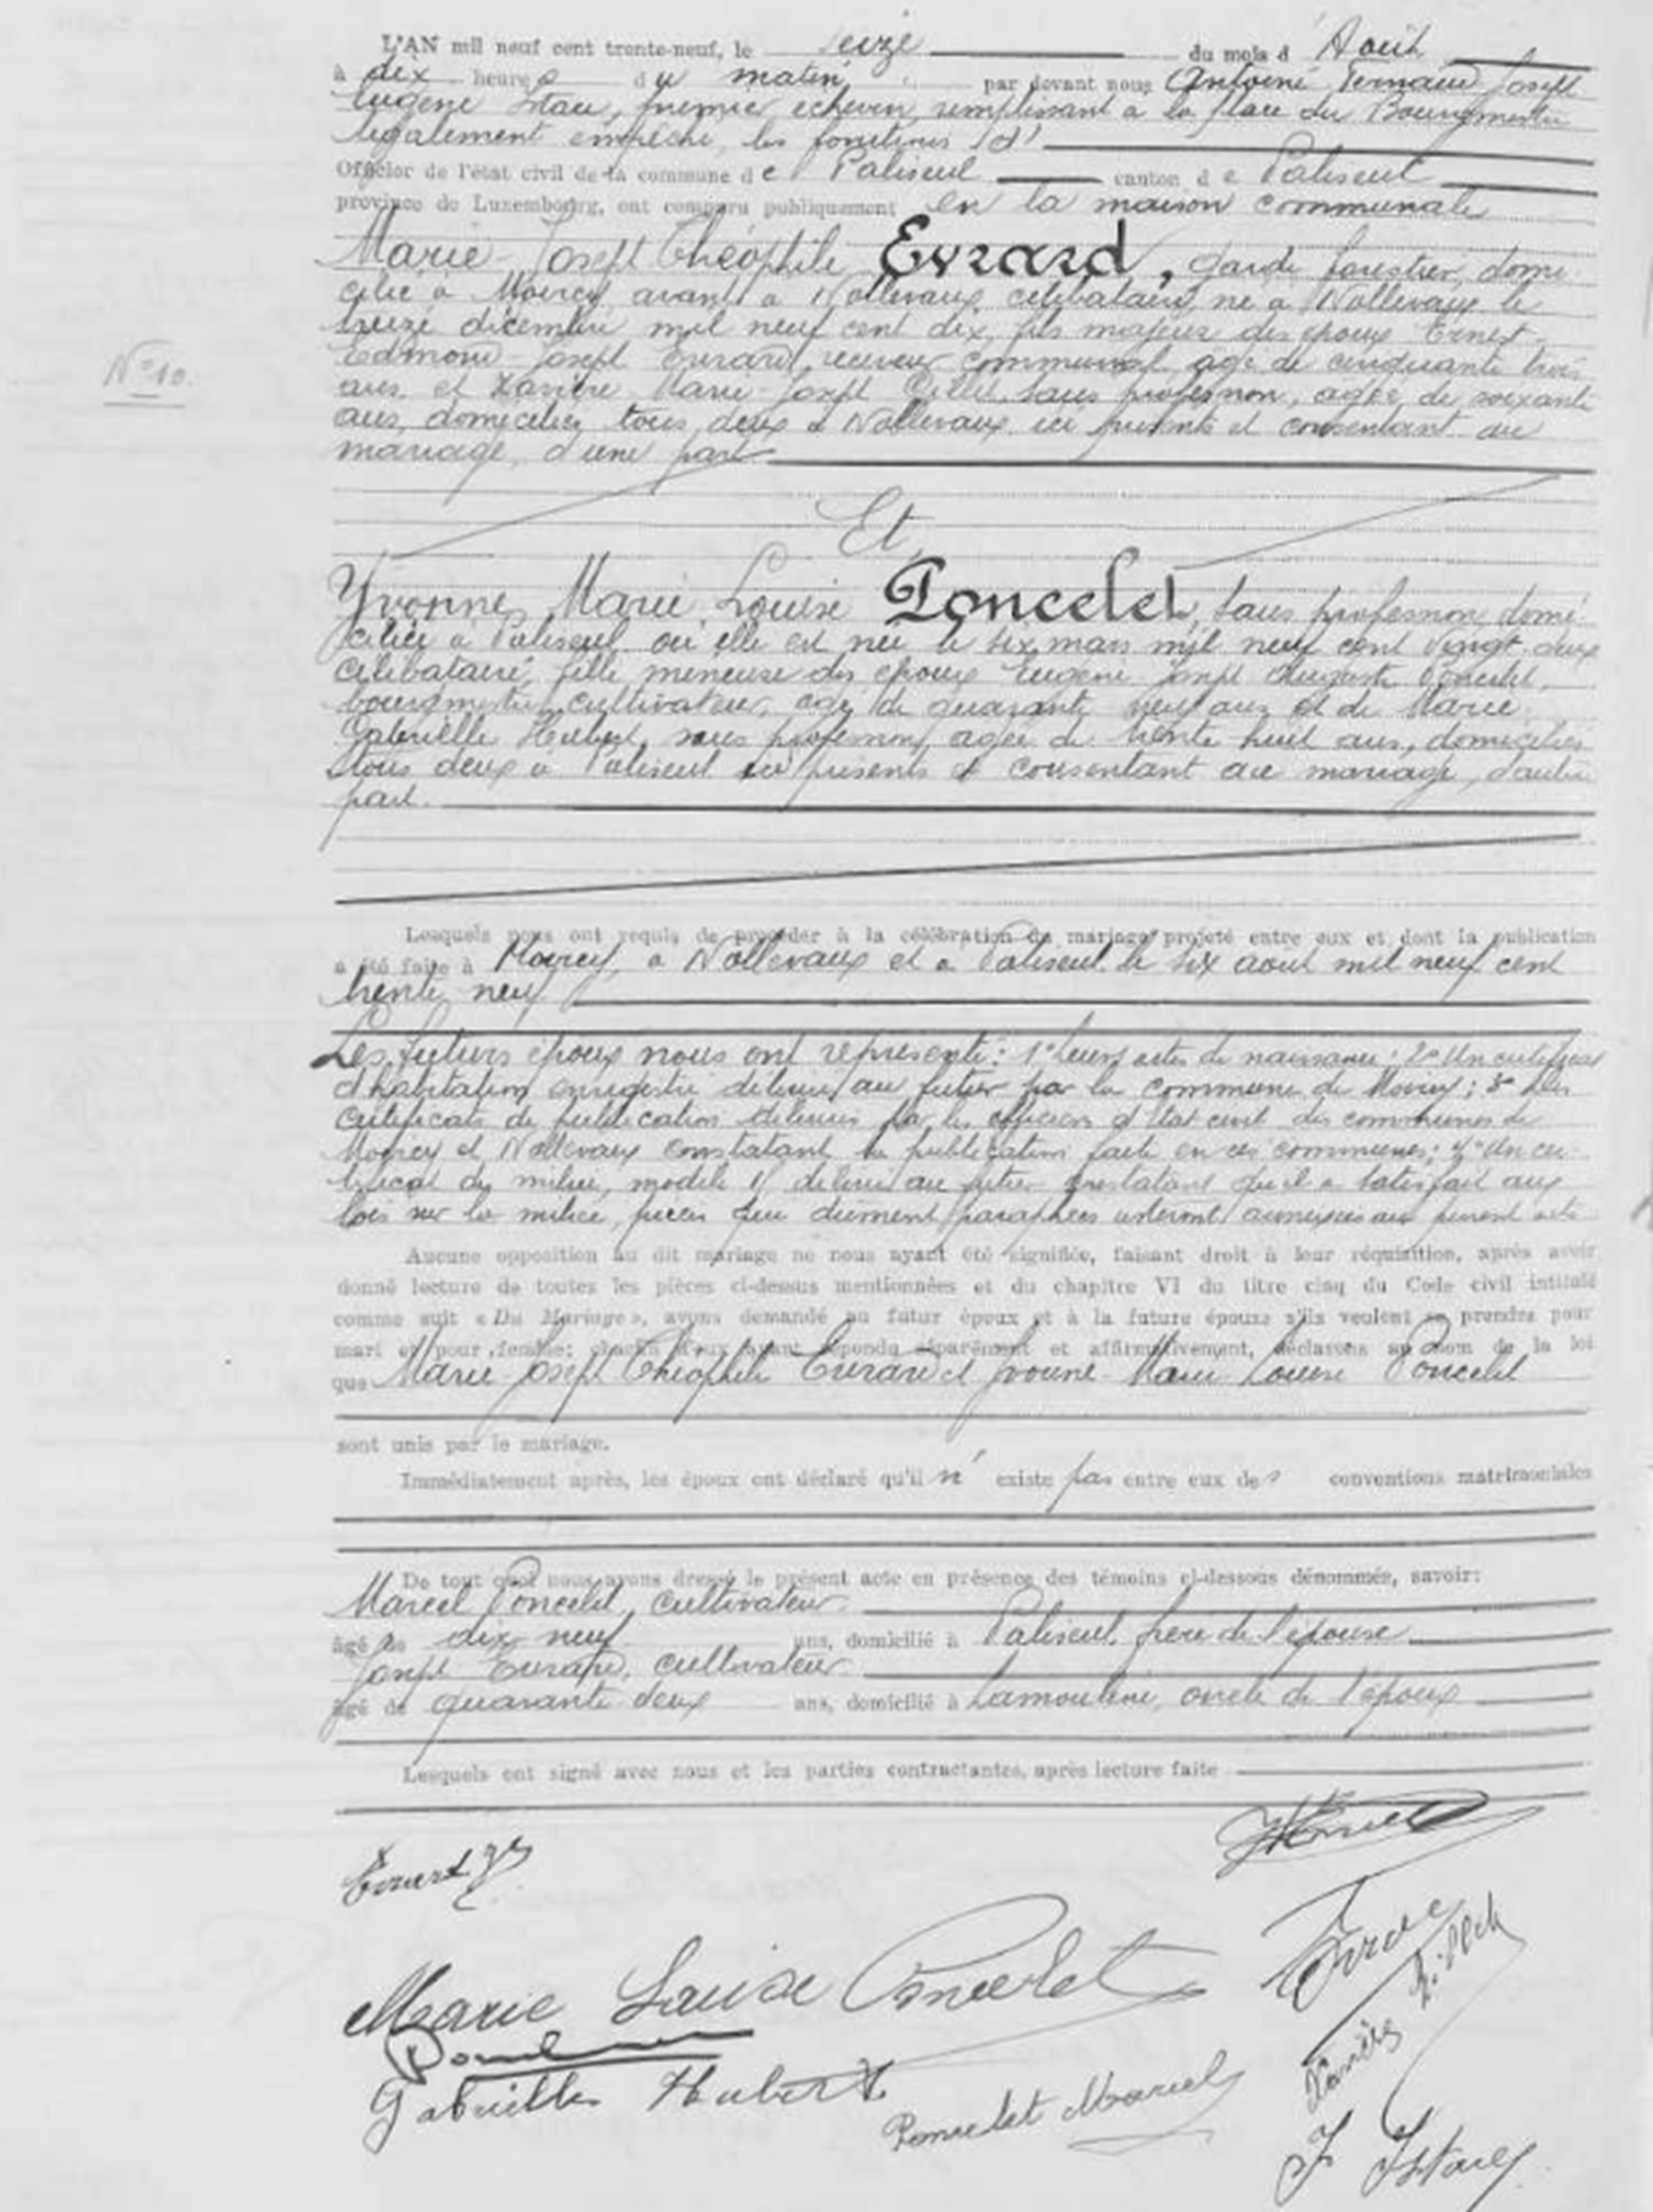 L'AN mil neuf cent trente-neuf, le seize du mois d' Août
à dix heures du matin, par devant nous Antoine Fernand Joseph
Eugène premier échevin, remplissant à la place du Bourgmestre
légalement empêché, les fonctions d'
Officier de l'état civil de la commune de Paliseul canton de Paliseul
province de Luxembourg, ont comparu publiquement en la maison communale
Marie Joseph Théophile Evrard, garde forestier, domi-
cilié à Moircy, avant à Nollevaux, célibataire, né à Nollevaux le
treize décembre mil neuf cent dix, fils majeur des époux Ernest-
Edmond-Joseph Evrard, receveur communal, âgé de cinquante trois
ans et Marie-Joseph sans profession, âgée de soixante
ans, domiciliés tous deux à Nollevaux, ici présents et consentant au
mariage, d'une part
N° 10.
Et
Yvonne Marie Louise Poncelet, sans profession, domi-
ciliée à Paliseul où elle est née le six mars mil neuf cent vingt-deux
célibataire, fille mineure des époux Eugène Joseph Auguste Poncelet,
bourgmestre, cultivateur, âgé de quarante neuf ans et de Marie
Gabrielle Hubert, sans profession, âgée de trente huit ans, domiciliés
tous deux à Paliseul ici présents et consentant au mariage, d'autre
part.
Lesquels nous ont requis de procéder à la célébration du mariage projeté entre eux et dont la publication
a été faite à Moircy, à Nollevaux et à Paliseul le six août mil neuf cent
trente neuf
Les futurs époux nous ont représenté: 1° Leurs actes de naissance; 2° Un certificat
d'habitation enregistré délivré au futur par la commune de Moircy; 3° Les
certificats de publication délivrés par les officiers d'Etat civil des communes de
Moircy et Nollevaux constatant la publication faite en ces communes; 4° Un cer-
tificat de milice, modèle délivré au futur constatant qu'il a satisfait aux
lois sur la milice, pièces qui dûment paraphées resteront annexées au présent acte
Aucune opposition au dit mariage ne nous ayant été signifiée, faisant droit à leur réquisition, après avoir
donné lecture de toutes les pièces ci-dessus mentionnées et du chapitre VI du titre cinq du Code civil intitulé
comme suit « Du Mariage», avons demandé au futur époux et à la future épouse s'ils veulent se prendre pour
mari et pour femme: chacun d'eux ayant répondu séparément et affirmativement, déclarons au nom de la loi
que Marie Joseph Théophile Evrard et Yvonne Marie Louise Poncelet
sont unis par le mariage.
Immédiatement après, les époux ont déclaré qu'il n' existe pas entre eux des conventions matrimoniales
De tout quoi nous avons dressé le présent acte en présence des témoins ci-dessous dénommés, savoir:
Marcel Poncelet, cultivateur
âgé de dix neuf ans, domicilié à Paliseul, frère de l'épouse
Joseph Evrard, cultivateur
âgé de quarante deux ans, domicilié à Lamouline, oncle de l'époux
Lesquels ont signé avec nous et les parties contractantes, après lecture faite
Marie Louise Poncelet
Gabrielle Hubert
Poncelet Marcel